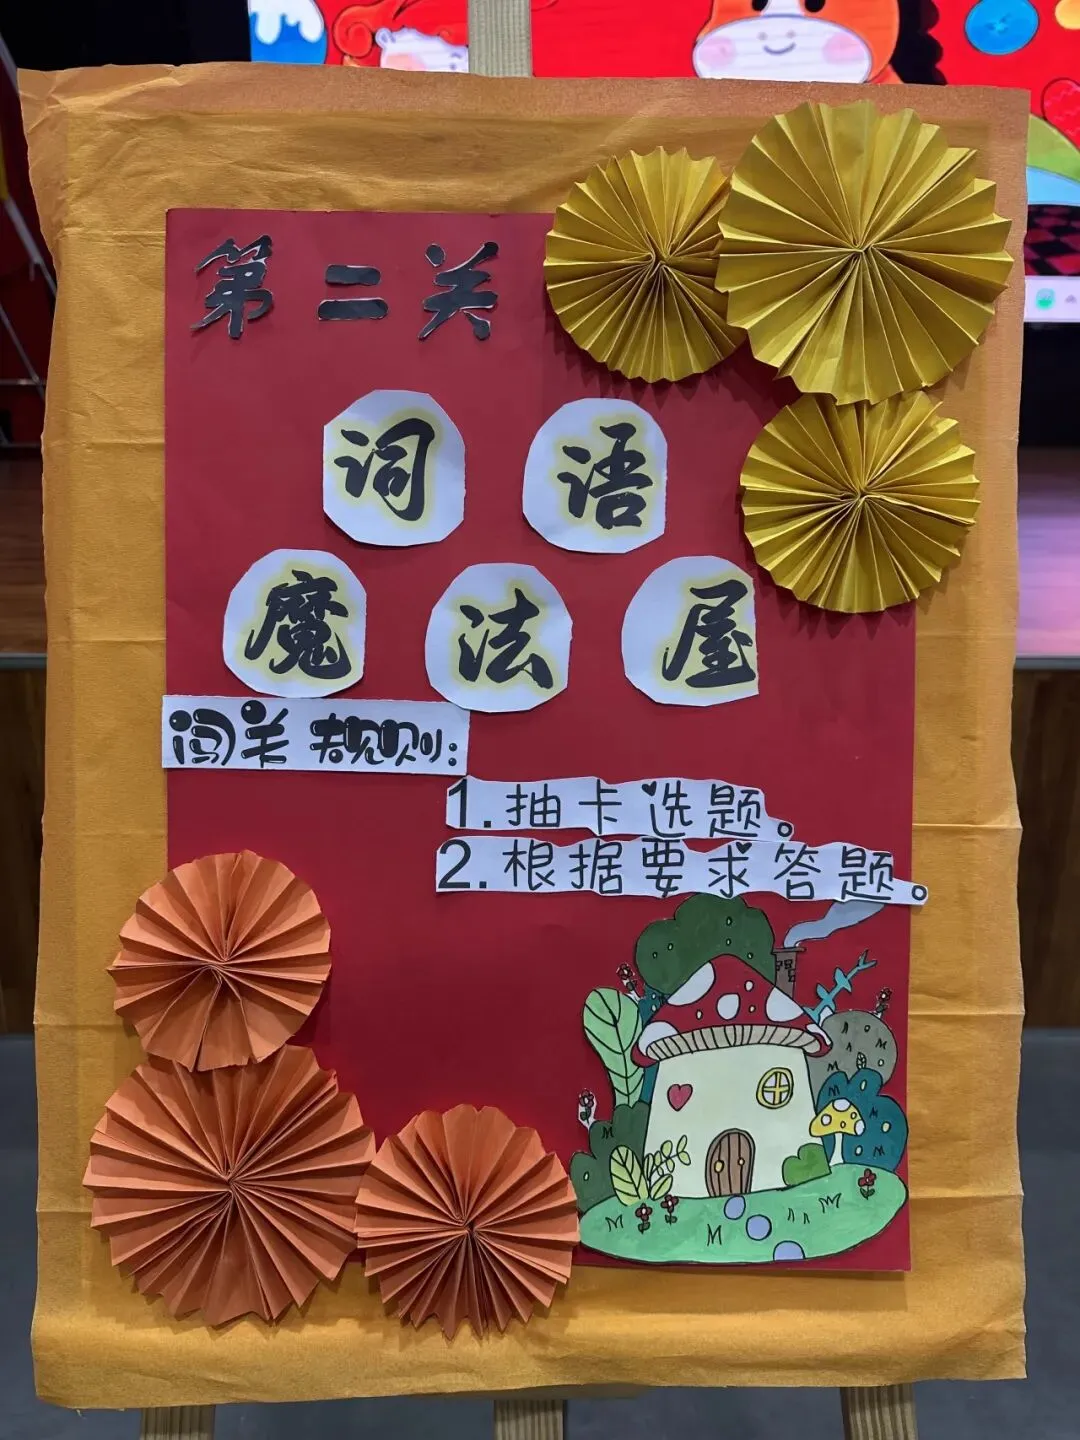 第二关
词语
魔法屋
闯关规则：
1.抽卡选题。
2.根据要求答题。